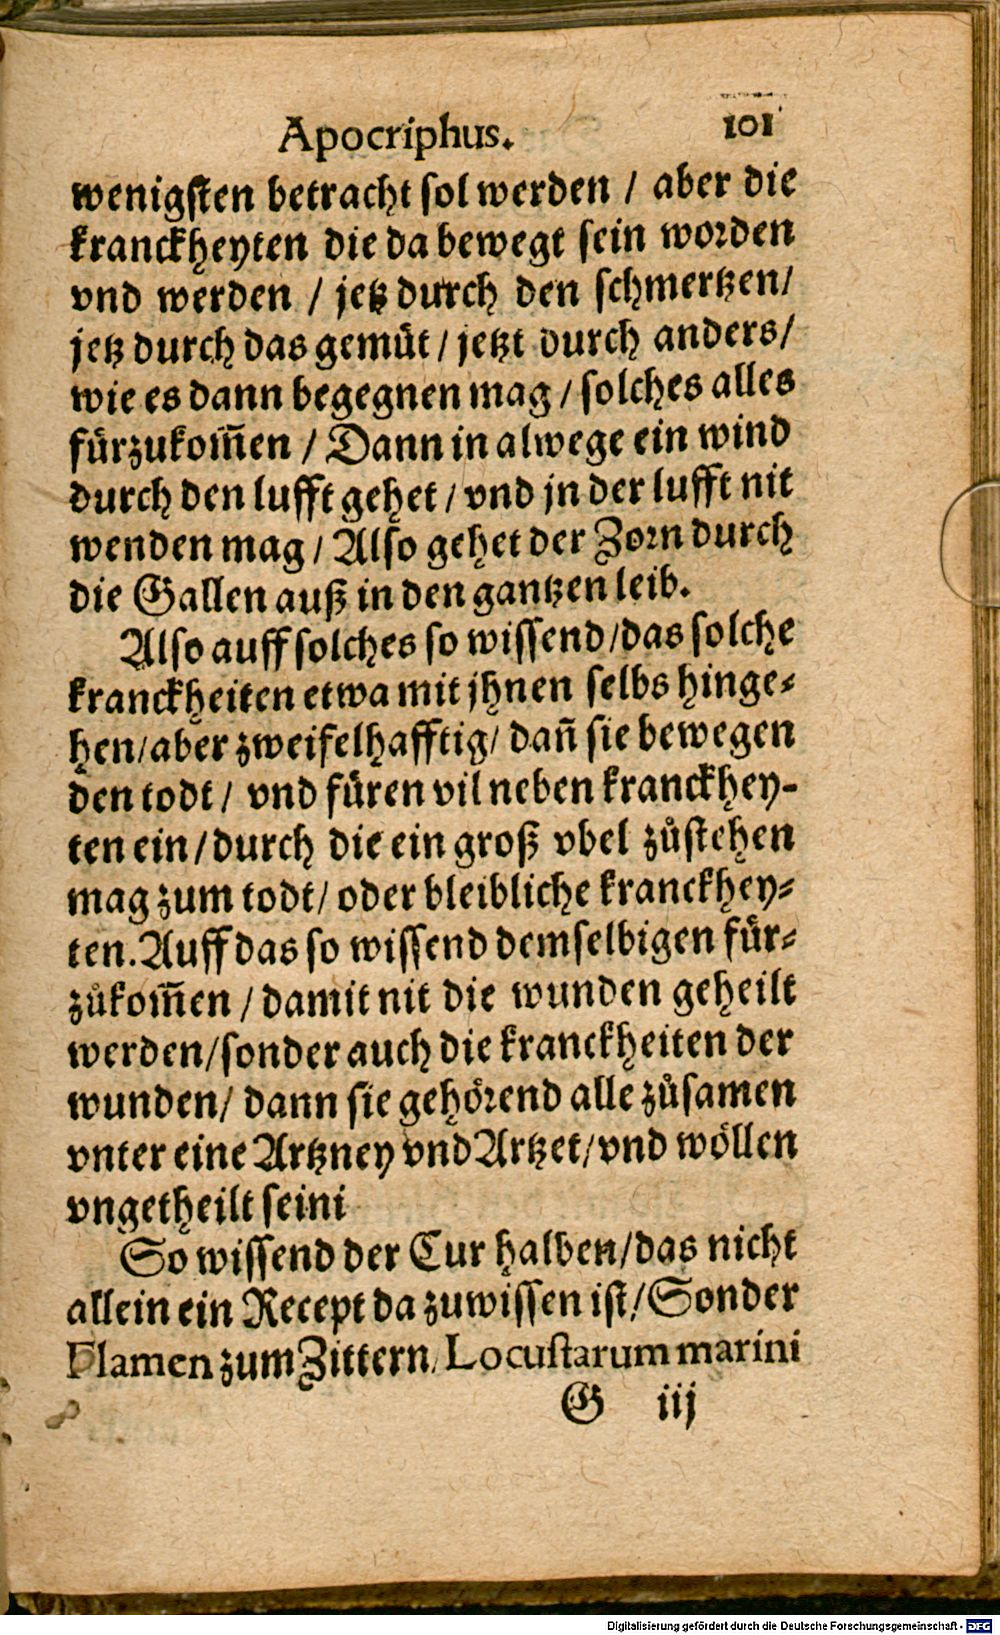 Apocriphus. 101
wenigsten betracht sol werden / aber die
kranckheyten die da bewegt sein worden
vnd werden / jetz durch den schmertzen/
jetz durch das gemüt / jetzt durch anders/
wie es dann begegnen mag / solches alles
fürzukom̃en / Dann in alwege ein wind
durch den lufft gehet / vnd jn der lufft nit
wenden mag / Also gehet der Zorn durch
die Gallen auß in den gantzen leib.
Also auff solches so wissend/das solche
kranckheiten etwa mit jhnen selbs hinge-
hen/aber zweifelhafftig/ dañ sie bewegen
den todt / vnd füren vil neben kranckhey-
ten ein/durch die ein groß vbel zůstehen
mag zum todt/ oder bleibliche kranckhey-
ten. Auff das so wissend demselbigen für-
zůkom̃en / damit nit die wunden geheilt
werden/sonder auch die kranckheiten der
wunden/ dann sie gehörend alle zůsamen
vnter eine Artzney vnd Artzet/vnd wöllen
vngetheilt seini
So wissend der Cur halben/das nicht
allein ein Recept da zuwissen ist/Sonder
Flamen zum Zittern, Locustarum marini
G iij
Digitalisierung gefördert durch die Deutsche Forschungsgemeinschaft - DFG